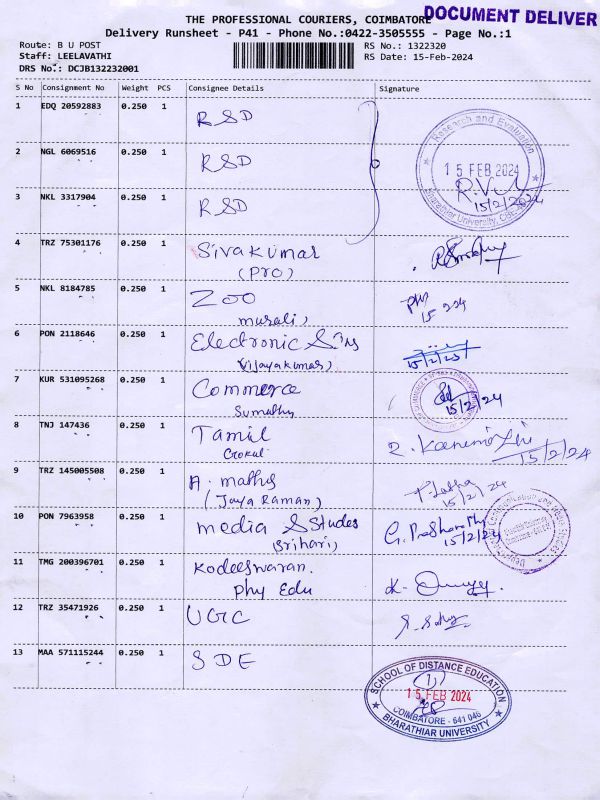 DOCUMENT DELIVER
THE PROFESSIONAL COURIERS, COIMBATORE
Delivery Runsheet - P41 - Phone No.:0422-3505555 - Page No.:1
Route: B U POST RS No.: 1322320
Staff: LEELAVATHI RS Date: 15-Feb-2024
DRS No.: DCJB132232001
S No Consignment No Weight PCS Consignee Details Signature
1 EDQ 20592883 0.250 1 RSD
Research and Evaluation
15 FEB 2024
15/2/2024
Bharathiar University, CBE
2 NGL 6069516 0.250 1 RSD
3 NKL 3317904 0.250 1 RSD
4 TRZ 75301176 0.250 1 Sivakumar
(PRO)
5 NKL 8184785 0.250 1 ZOO
murali)
15 2 24
6 PON 2118646 0.250 1 Electronic & Ins
Vijayakumar)
7 KUR 531095268 0.250 1 Commerce
Sumathy
15/2/24
8 TNJ 147436 0.250 1 Tamil
Gokul
15/2/24
9 TRZ 145005508 0.250 1 A. maths
(Jaya Raman)
15/2/24
10 PON 7963958 0.250 1 media & Studes
Srihari)
15/2/24
11 TMG 200396701 0.250 1 Kodeeswaran.
Phy Edu
12 TRZ 35471926 0.250 1 UGC
13 MAA 571115244 0.250 1 SDE
SCHOOL OF DISTANCE EDUCATION
15 FEB 2024
COIMBATORE - 641 046
BHARATHIAR UNIVERSITY